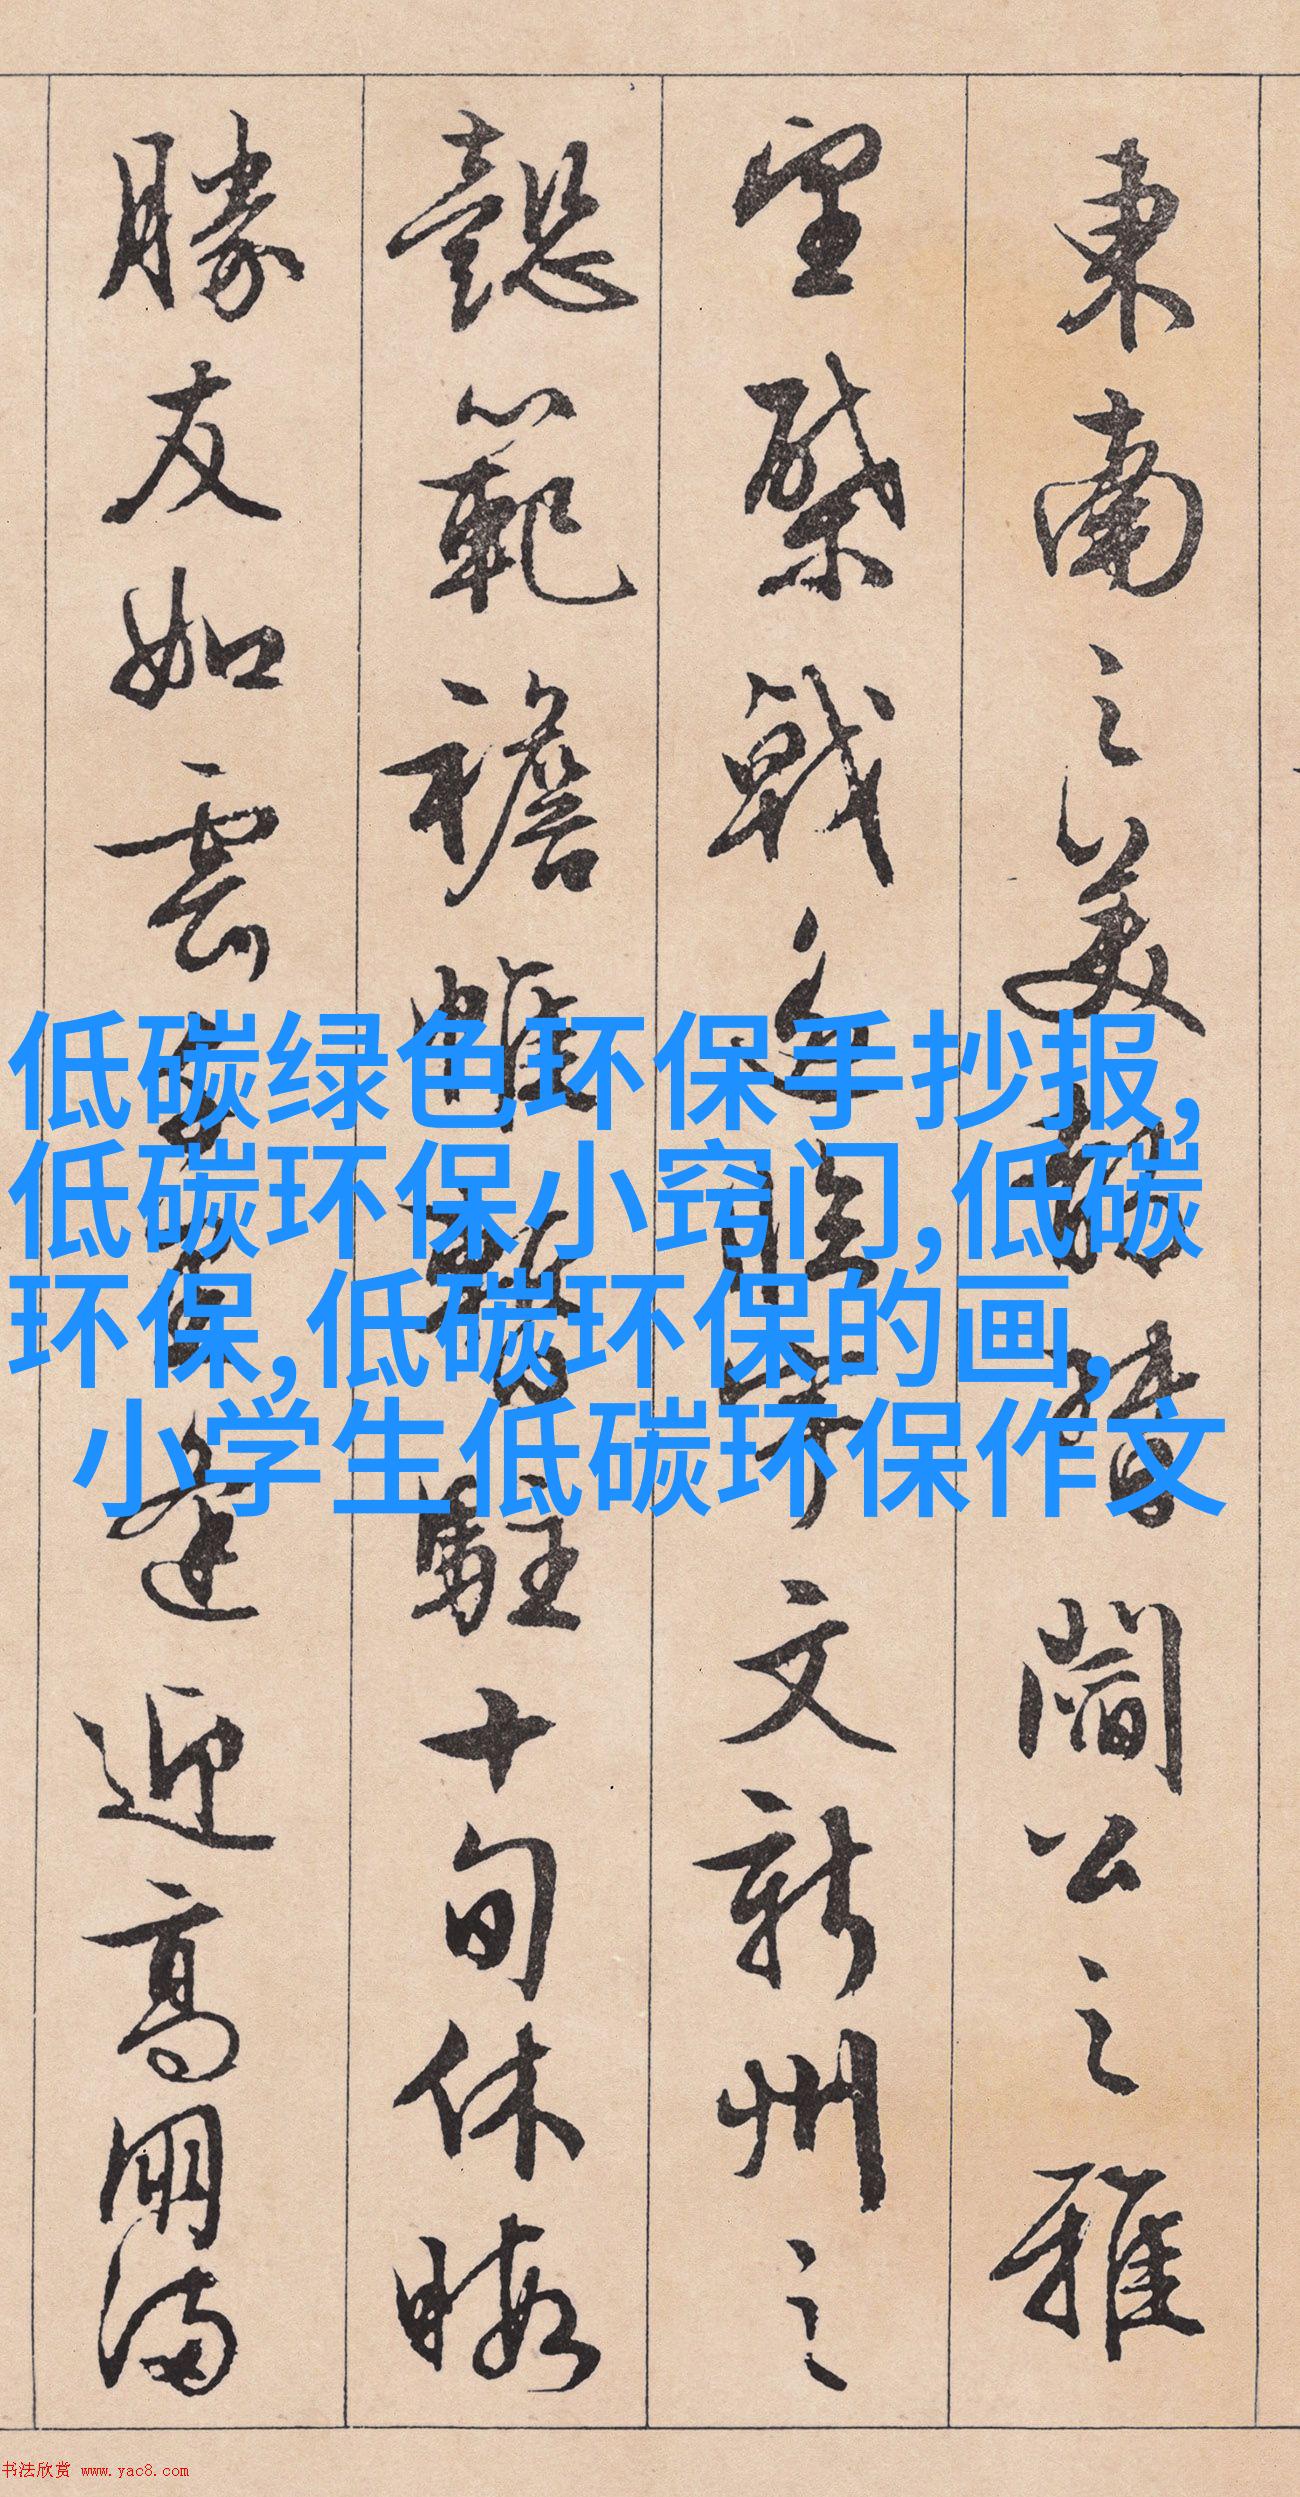 東南之美都督閻公之雅
望棨戟遥臨宇文新州之
懿範襜帷暫駐十旬休暇
勝友如雲千里逢迎高朋满
低碳绿色环保手抄报,
低碳环保小窍门,低碳
环保,低碳环保的画,
小学生低碳环保作文
书法欣赏 www.yac8.com